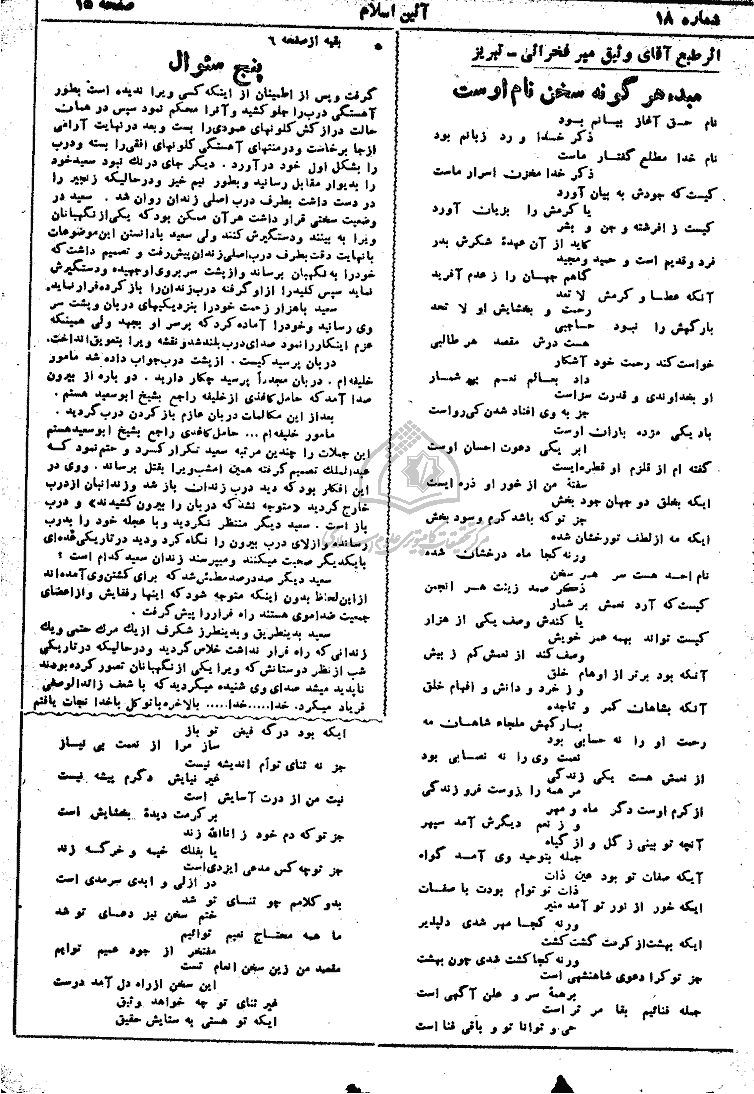 شماره ۱۸
آئین اسلام
صفحه ۱۵
اثر طبع آقای وثیق میر فخرائی - تبریز
مبدء هر گونه سخن نام اوست
نام حق آغاز بیانم بود
ذکر خدا و رد زبانم بود
نام خدا مطلع گفتار ماست
ذکر خدا مخزن اسرار ماست
کیست که جودش به بیان آورد
یا کرمش را بزبان آورد
کیست ز افرشته و جن و بشر
کاید از آن عهدهٔ شکرش بدر
فرد و قدیم است و حمید و مجید
گاهم جهان را ز عدم آفرید
آنکه عطا و کرمش لا تعد
رحمت و بخشایش او لا تحد
بارگهش را نبود حاجبی
هست درش مقصد هر طالبی
خواست کند رحمت خود آشکار
داد بعالم نعم بی شمار
او بخداوندی و قدرت سزاست
جز به وی افتاد شدن کی رواست
باد یکی مژده باران اوست
ابر یکی دعوت احسان اوست
گفته ام از قلزم او قطره ایست
سفتهٔ من از خور او ذره ایست
ایکه بخلق دو جهان جود بخش
جز تو که باشد کرم و سود بخش
ایکه مه از لطف تو رخشان شده
ورنه کجا ماه درخشان شده
نام احد هست سر هر سخن
ذکر صمد زینت هر انجمن
کیست که آرد نعمش بر شمار
یا کندش وصف یکی از هزار
کیست تواند بهمه عمر خویش
وصف کند از نعمش کم ز بیش
آنکه بود برتر از اوهام خلق
وز خرد و دانش و افهام خلق
آنکه بشاهان کمر و تاجده
بارگهش ملجاء شاهان مه
رحمت او را نه حسابی بود
نعمت وی را نه نصابی بود
از نعمش هست یکی زندگی
مر همه را زوست فرو زندگی
از کرم اوست دگر ماه و مهر
وز نعم دیگرش آمد سپهر
آنچه تو بینی ز گل و از گیاه
جمله بتوحید وی آمد گواه
آیکه صفات تو بود عین ذات
ذات تو توأم بودت با صفات
ایکه خور از نور تو آمد منیر
ورنه کجا مهر شدی دلپذیر
ایکه بهشت از کرمت گشت کشت
ورنه کجا کشت شدی چون بهشت
جز تو کرا دعوی شاهنشهی است
بر همهٔ سر و علن آگهی است
جمله فنائیم بقا مر تر است
حی و توانا تو و باقی فنا است
بقیه از صفحه ۶
پنج سئوال
گرفت و پس از اطمینان از اینکه کسی ویرا ندیده است بطور
آهستگی درب را جلو کشید و آنرا محکم نمود سپس در همان
حالت دراز کش کلونهای عمودی را بست و بعد در نهایت آرامی
از جا برخاست و در منتهای آهستگی کلونهای افقی را بسته و درب
را بشکل اول خود در آورد . دیگر جای درنك نبود سعید خود
را بدیوار مقابل رسانید و بطور نیم خیز در حالیکه زنجیر را
در دست داشت بطرف درب اصلی زندان روان شد . سعید در
وضعیت سختی قرار داشت هر آن ممکن بود که یکی از نگهبانان
ویرا به بیند و دستگیرش کنند ولی سعید با دانستن این موضوعات
با نهایت دقت بطرف درب اصلی زندان پیش رفت و تصمیم داشت که
خود را به نگهبان برساند و از پشت سر بروی او جهیده و دستگیرش
نماید سپس کلید را از او گرفته درب زندان را باز کرده فرار نماید.
سعید با هزار زحمت خود را بنزدیکیهای دربان و پشت سر
وی رسانید و خود را آماده کرد که بر سر او بجهد ولی همینکه
عزم اینکار را نمود صدای درب بلند شد و نقشه ویرا بتعویق انداخت.
دربان پرسید کیست . از پشت درب جواب داده شد مامور
خلیفه ام . دربان مجدداً پرسید چکار دارید . دو باره از بیرون
صدا آمد که حامل کاغذی از خلیفه راجع بشیخ ابو سعید هستم .
بعد از این مکالمات دربان عازم باز کردن درب گردید .
مامور خلیفه ام ... حامل کاغذی راجع بشیخ ابو سعید هستم
این جملات را چندین مرتبه سعید تکرار کرد و حتم نمود که
عبدالملك تصمیم گرفته همین امشب ویرا بقتل برساند . ووی در
این افکار بود که دید درب زندان باز شد و زندانبان از درب
خارج گردید «متوجه نشد که دربان را بیرون کشیدند» و درب
باز است . سعید دیگر منتظر نگردید و با عجله خود را بدرب
رسانده و از لای درب بیرون را نگاه کرد و دید در تاریکی عده ای
با یکدیگر صحبت میکنند و میپرسند زندان سعید کدام است ؟
سعید دیگر صد درصد مطمئن شد که برای کشتن وی آمده اند
از این لحاظ بدون اینکه متوجه شود که اینها رفقایش و از اعضای
جمعیت ضد اموی هستند راه فرار را پیش گرفت .
سعید بدینطریق و بدینطرز شگرف از یك مرك حتمی و یك
زندانی که راه فرار نداشت خلاص گردید و در حالیکه در تاریکی
شب از نظر دوستانش که ویرا یکی از نگهبانان تصور کرده بودند
ناپدید میشد صدای وی شنیده میگردید که با شعف زائدالوصفی
فریاد میکرد. خدا.....خدا..... بالاخره با توکل باخدا نجات یافتم
ایکه بود درگه فیض تو باز
ساز مرا از نعمت بی نیاز
جز نه ثنای توأم اندیشه نیست
غیر نیایش دگرم پیشه نیست
نیت من از درت آسایش است
بر کرمت دیدهٔ بخشایش است
جز تو که دم خود ز اناالله زند
یا بفلك خیمه و خرگه زند
جز تو چه کس مدعی ایزدی است
در ازلی و ابدی سرمدی است
بدو کلامم چو ثنای تو شد
ختم سخن نیز دعای تو شد
ما همه محتاج نعیم توائیم
مفتخر از جود عمیم توایم
مقصد من زین سخن انعام تست
این سخن از راه دل آمد درست
غیر ثنای تو چه خواهد وثیق
ایکه تو هستی به ستایش حقیق